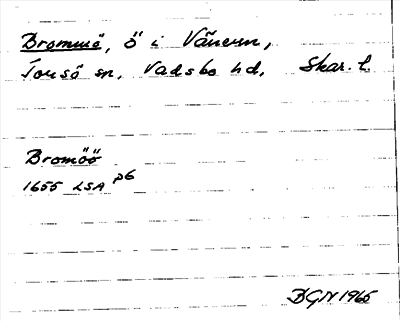 Brommö, ö i Vänern,
Torsö sn, Vadsbo hd, Skar. l.
Bromöö
1655 LSA p6
BGN 1965